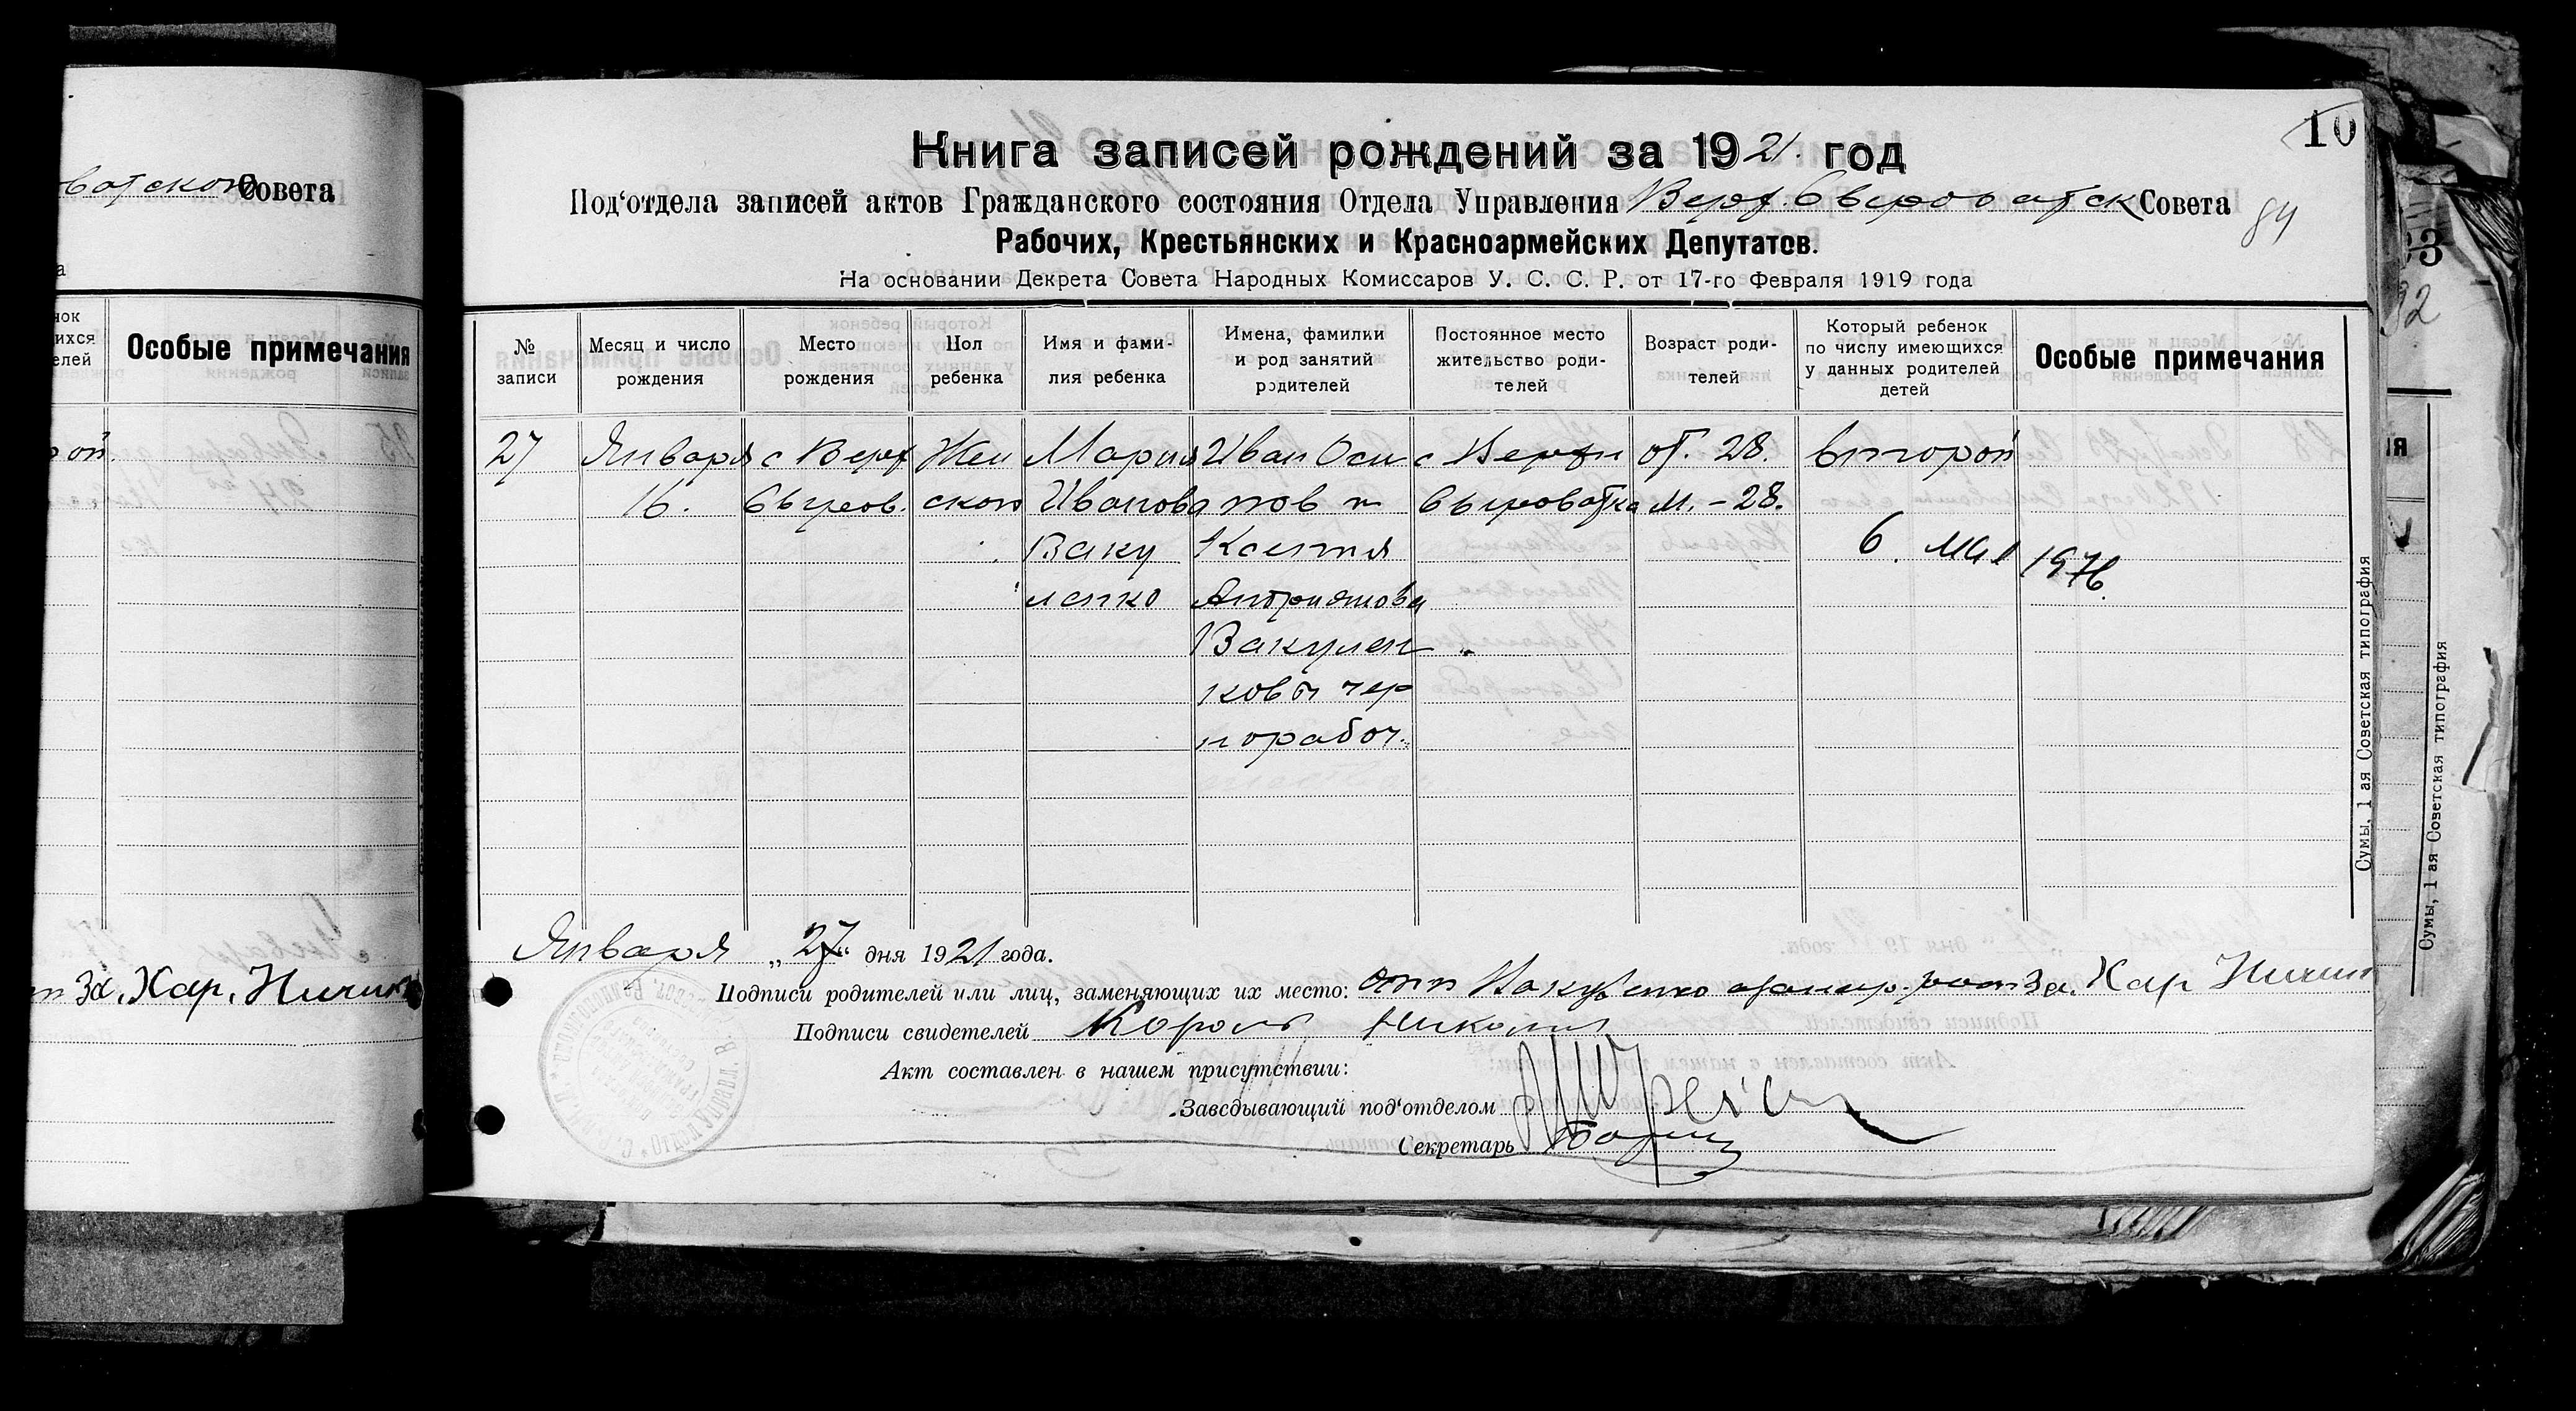 10
Книга записей рождений за 1921. год
Под‘отдела записей актов Гражданского состояния Отдела Управления Верх. Сыроватск Совета
84
Рабочих, Крестьянских и Красноармейских Депутатов.
На основании Декрета Совета Народных Комиссаров У. С. С. Р. от 17-го Февраля 1919 года
№ записи
Месяц и число рождения
Место рождения
Пол ребенка
Имя и фами-
лия ребенка
Имена, фамилки
и род занятий
родителей
Постоянное место
жительство роди-
телей
Возраст роди-
телей
Который ребенок
по числу имеющихся
у данных родителей
детей
Особые примечания
27
Января
16.
с Верх
Сыров.
Жен
ского
Мария
Иванова
Ваку
ленко
Иван Оси
пов и
Ксения
Вакулен
ковы чер
норабоч.
с Верхн
Сыроватка
от. 28.
м. - 28.
второй
6. мая 1976.
Января „27“ дня 1921 года.
Подписи родителей или лиц, заменяющих их место: Вакуленко за. Хар Ничип
Подписи свидетелей Король Николай
Акт составлен в нашем присутствии:
Заведывающий под‘отделом
Секретарь
Сумы, 1 ая Советская типография
ватского Совета
Особые примечания
рой.
за. Хар. Ничип
32
Сумы, 1 ая Советская типография